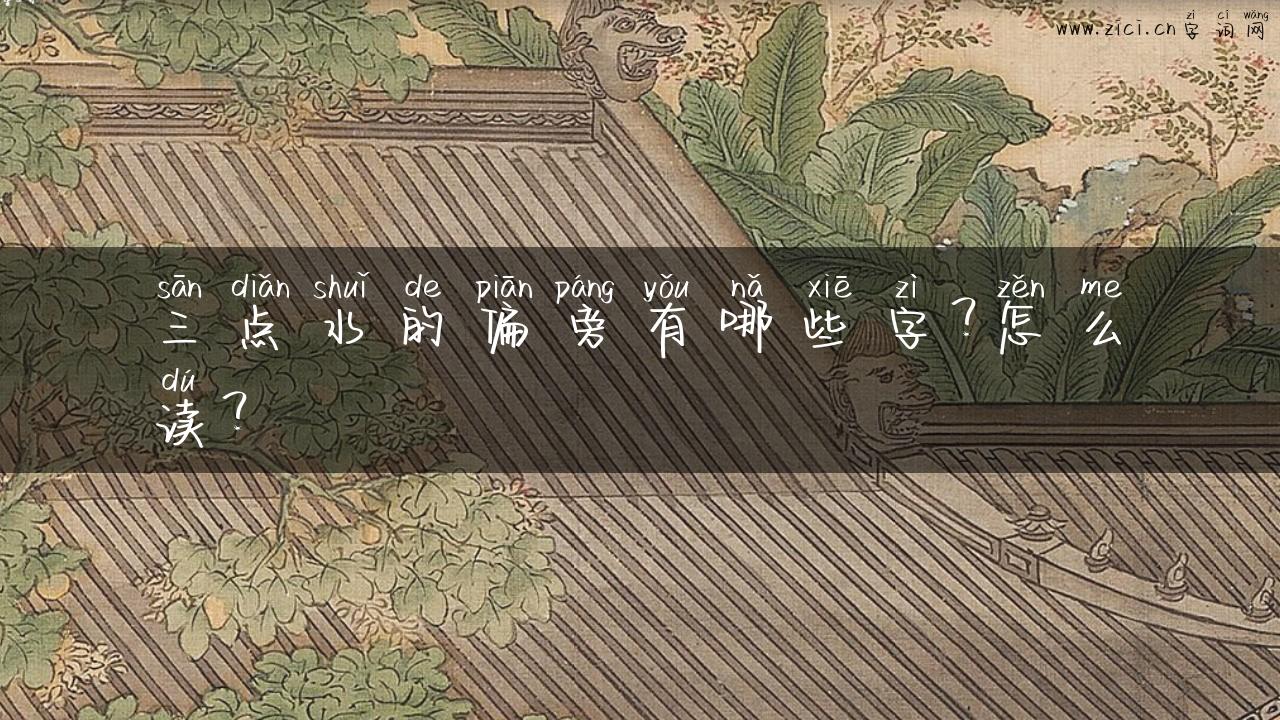 zì cí wǎng
www.zici.cn 字词网
sān diǎn shuǐ de piān páng yǒu nǎ xiē zì zěn me
三点水的偏旁有哪些字?怎么
dú
读?